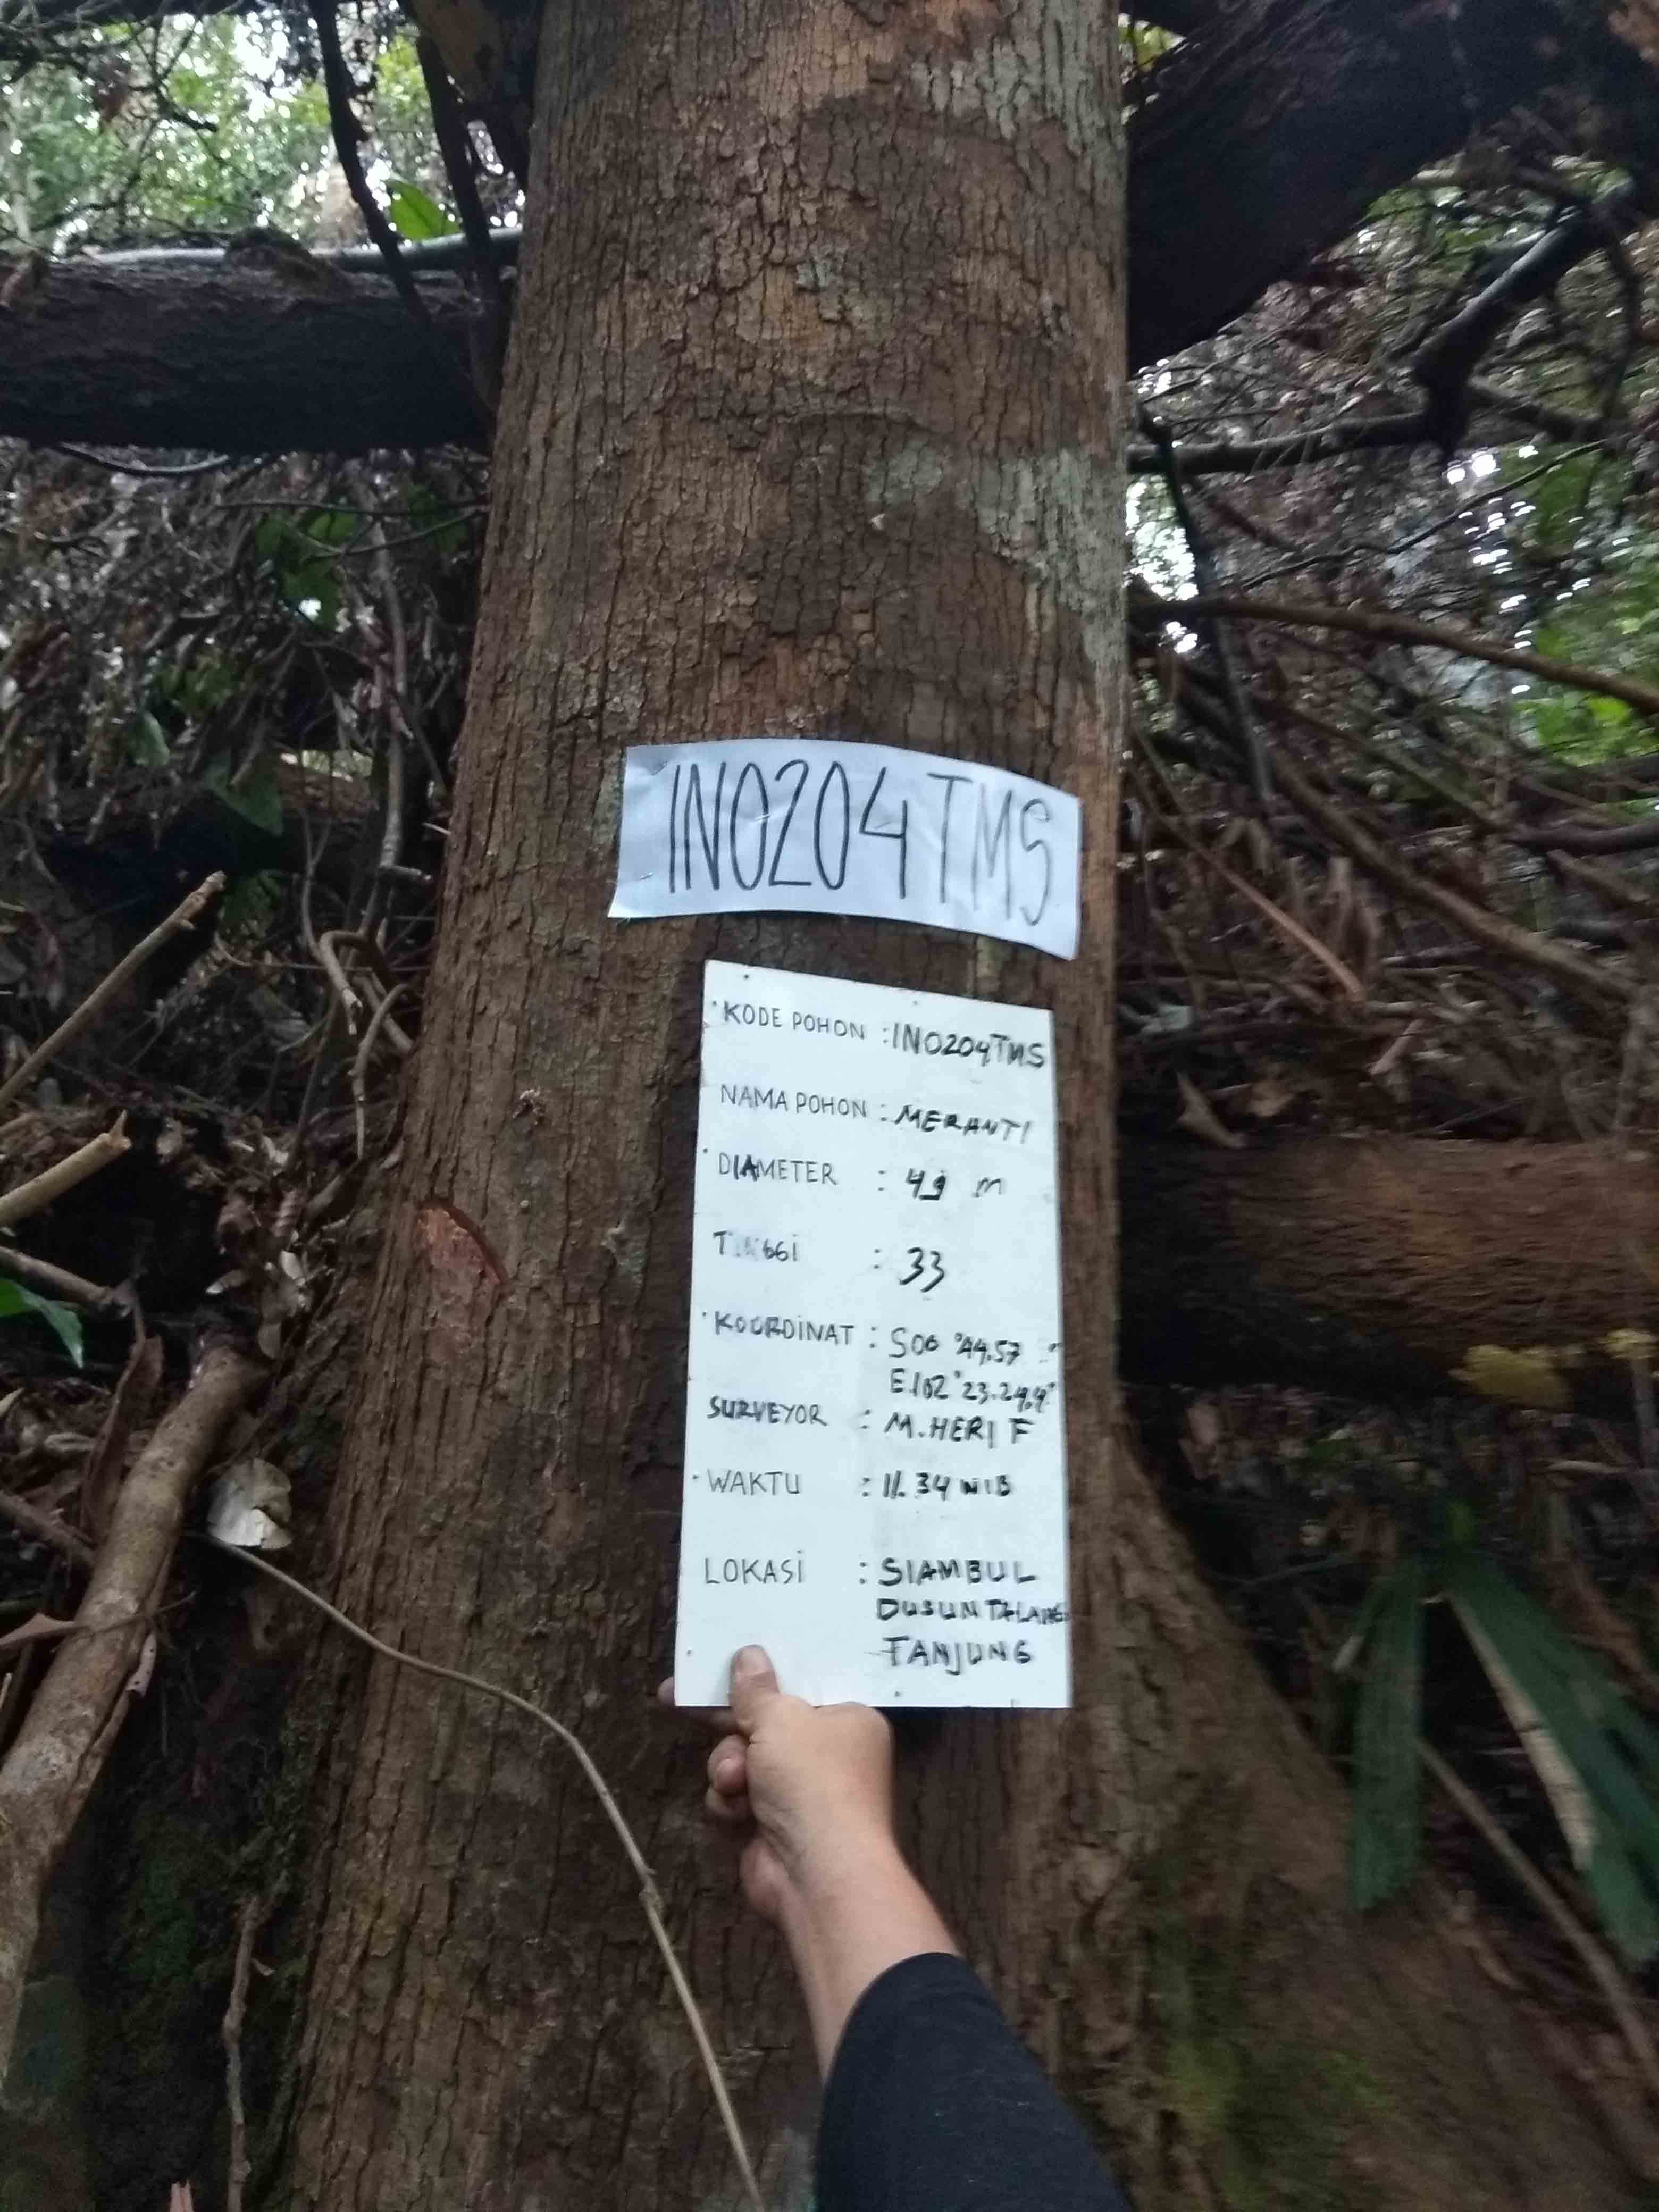 IN0204TMS
KODE POHON : IN0204TMS
NAMA POHON : MERANTI
DIAMETER : 49 m
TINGGI : 33
KOORDINAT : S00 °44.57
E.102°23.24,4"
SURVEYOR : M. HERI F
WAKTU : 11.34 WIB
LOKASI : SIAMBUL
DUSUN TALANG
TANJUNG